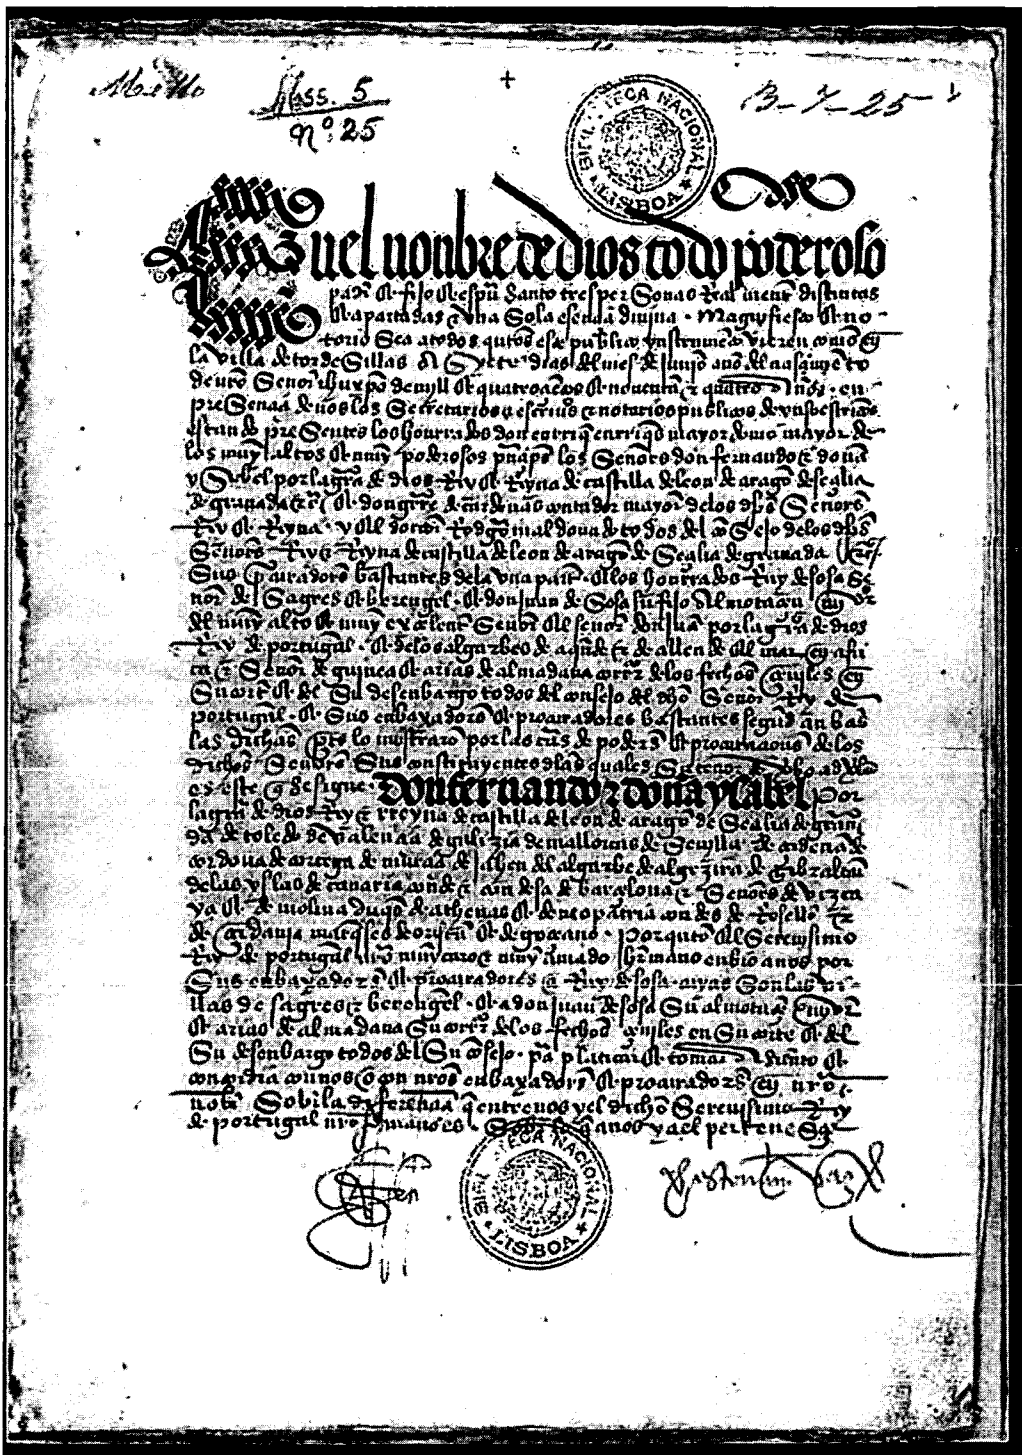 Mss. 5
nº 25
B-7-25
BIBLIOTECA NACIONAL LISBOA
En el nonbre de dios todo poderoso
padre & fijo & espu Santo tres personas Real mente distintas
& apartadas & vna Sola esencia diuina. Magnifiesto & no-
torio Sea a todos quantos este publico ynstrumento vieren como en
la villa de tordesillas a Syete dias del mes de Junio año del nasçimiento
de nro Señor ihu xpo de myll & quatroçientos & nouenta & quatro años. en
presençia de nos los Secretarios & escriuanos & notarios publicos de yuso escriptos
estando presentes los honrrados don enrrique enrriques mayordomo mayor de
los muy altos & muy poderosos prinçipes los Señores don fernando & doña
ysabel por la graçia de dios Rey & Reyna de castilla de leon de aragon de seçilia
de granada & & don gutierre de cardenas contador mayor de los dichos Señores
Rey & Reyna. y el doctor Rodrigo maldonado todos del consejo de los dichos
Señores Rey & Reyna de castilla de leon de aragon de Seçilia de granada
Sus procuradores bastantes de la vna parte. & los honrrados Ruy de sosa Se-
ñor de Sagres & berengel. & don juan de Sosa su fijo almotaçen mayor
del muy alto & muy exçelente Señor el señor don juan por la graçia de dios
Rey de portugal. & de los algarbes de aquende & de allende el mar en afri
ca & Señor de guinea & arias de almadana corregidor de los fechos çeuiles en
Su corte & del Su desenbargo todos del consejo del dicho Señor Rey de
portugal. & Sus enbaxadores & procuradores bastantes segund anbas
las dichas partes lo mostraron por las cartas de poderes & procuraçiones de los
dichos Señores Sus constituyentes de las quales Su tenor de verbo ad verbo
es este que se sigue. Don fernando & doña ysabel por
la graçia de dios Rey & rreyna de castilla de leon de aragon de Seçilia de grana
da de toledo de valençia de galizia de mallorcas de Seuilla de çerdeña de
cordoua de corçega de murçia de jahen del algarbe de algezira de gibraltar
de las yslas de canaria conde & condesa de barçelona & Señores de vizca
ya & de molina duques de athenas & de neopatria condes de Rosellon &
de çerdania marqueses de oristan & de goçiano. Por quanto el Serenisimo
Rey de portugal nro muy caro & muy amado hermano enbio a nos por
Sus enbaxadores & procuradores a Ruy de sosa cuyas Son las vi-
llas de sagres & berengel. & a don juan de sosa Su almotaçen mayor
& arias de almadana Su corregidor de los fechos çeuiles en Su corte & del
Su desenbargo todos del Su consejo. para platicar & tomar asiento &
concordia con nos o con nros enbaxadores & procuradores en nro
nonbre Sobre la diferençia que entre nos y el dicho Serenissimo Rey
de portugal nro hermano es. Sobre lo que a nos y a el pertenesçe
BIBLIOTECA NACIONAL LISBOA